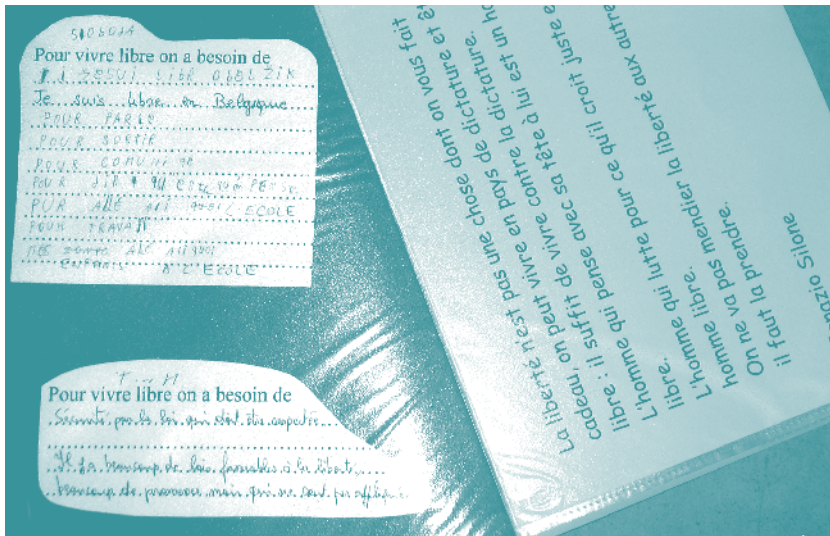 Pour vivre libre on a besoin de
Je suis libre en Belgique
POUR PARLE
POUR SORTIR
POUR COMUNI
POUR DIR PENSE
PUR ALLE L'ECOLE
POUR TRAVAIL
ENFANTS A L'ECOLE
Pour vivre libre on a besoin de
Sécurité par la loi qui doit être respectée
Il y a beaucoup de lois favorables à la liberté,
beaucoup de mais qui ne sont pas appliqué
La liberté n'est pas une chose dont on vous fait
cadeau, on peut vivre en pays de dictature et êt
libre : il suffit de vivre contre la dictature.
L'homme qui pense avec sa tête à lui est un ho
libre.
L'homme qui lutte pour ce qu'il croit juste e
homme libre.
On ne va pas mendier la liberté aux autre
il faut la prendre.
gnazio Silone